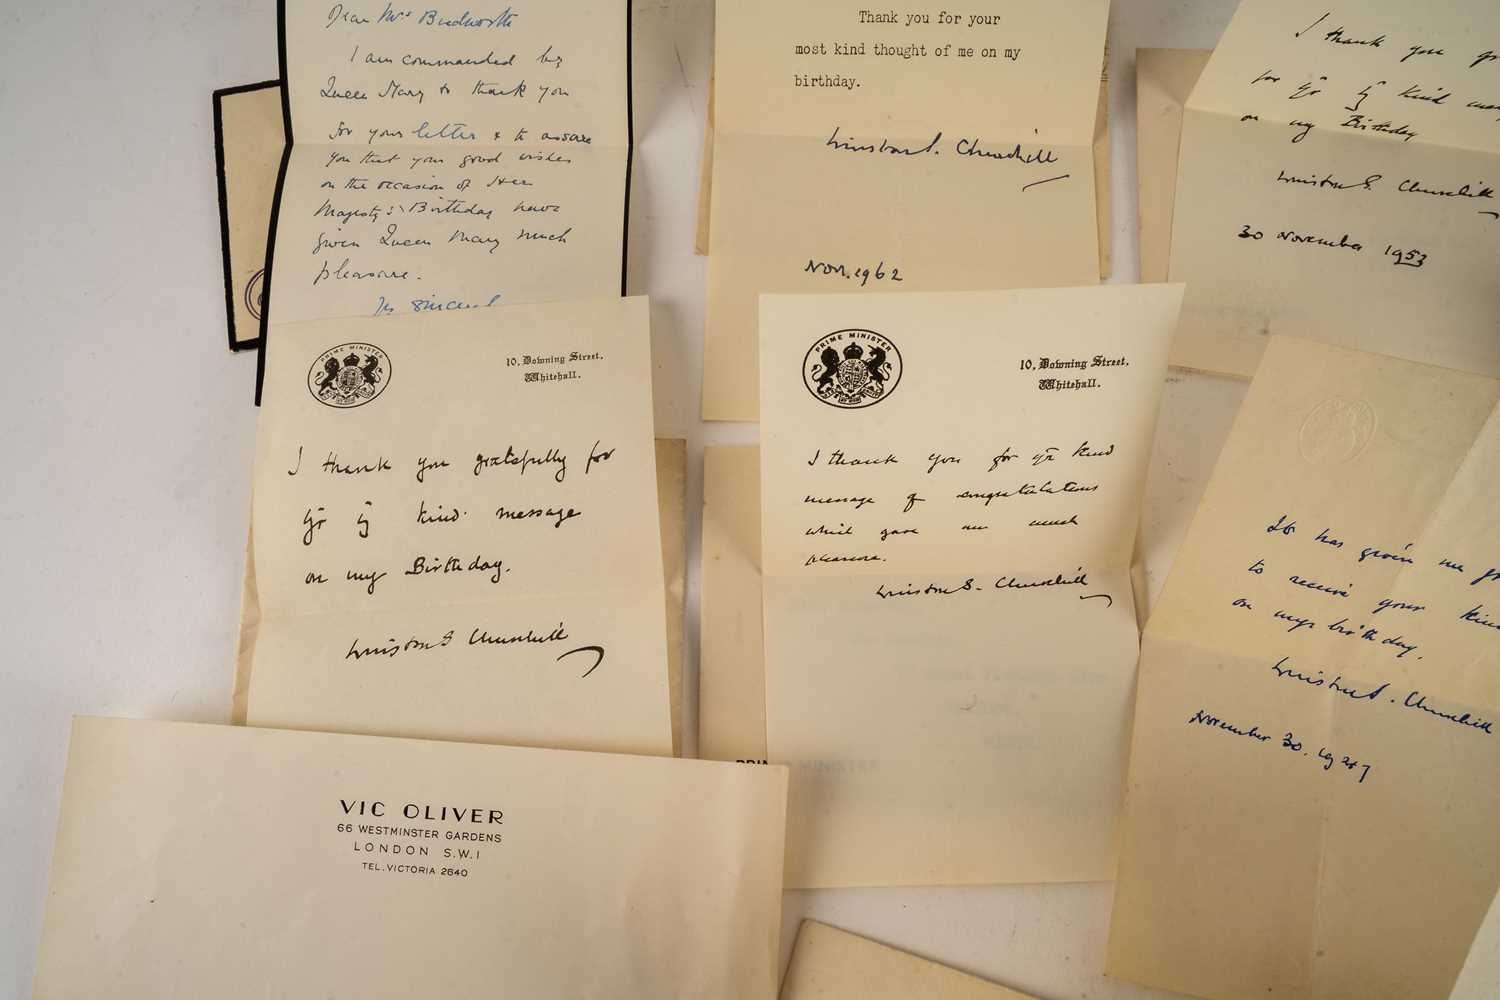 Dear Mrs Budworth
I am commanded by
Queen Mary to thank you
for your letter & to assure
you that your good wishes
on the occasion of Her
Majesty's Birthday have
given Queen Mary much
pleasure.
Thank you for your
most kind thought of me on my
birthday.
Winston S. Churchill
Nov. 1962
I thank you
for yr kind
on my Birthday
Winston S. Churchill
30 November 1953
PRIME MINISTER
10, Downing Street,
Whitehall.
I thank you gratefully for
yr kind message
on my Birthday.
Winston S Churchill
PRIME MINISTER
10, Downing Street,
Whitehall.
I thank you for yr kind
message of congratulations
which gave me much
pleasure.
Winston S. Churchill
It has given me
to receive your kind
on my birthday.
Winston S. Churchill
November 30. 1947
MINISTER
VIC OLIVER
66 WESTMINSTER GARDENS
LONDON S.W.1
TEL. VICTORIA 2640